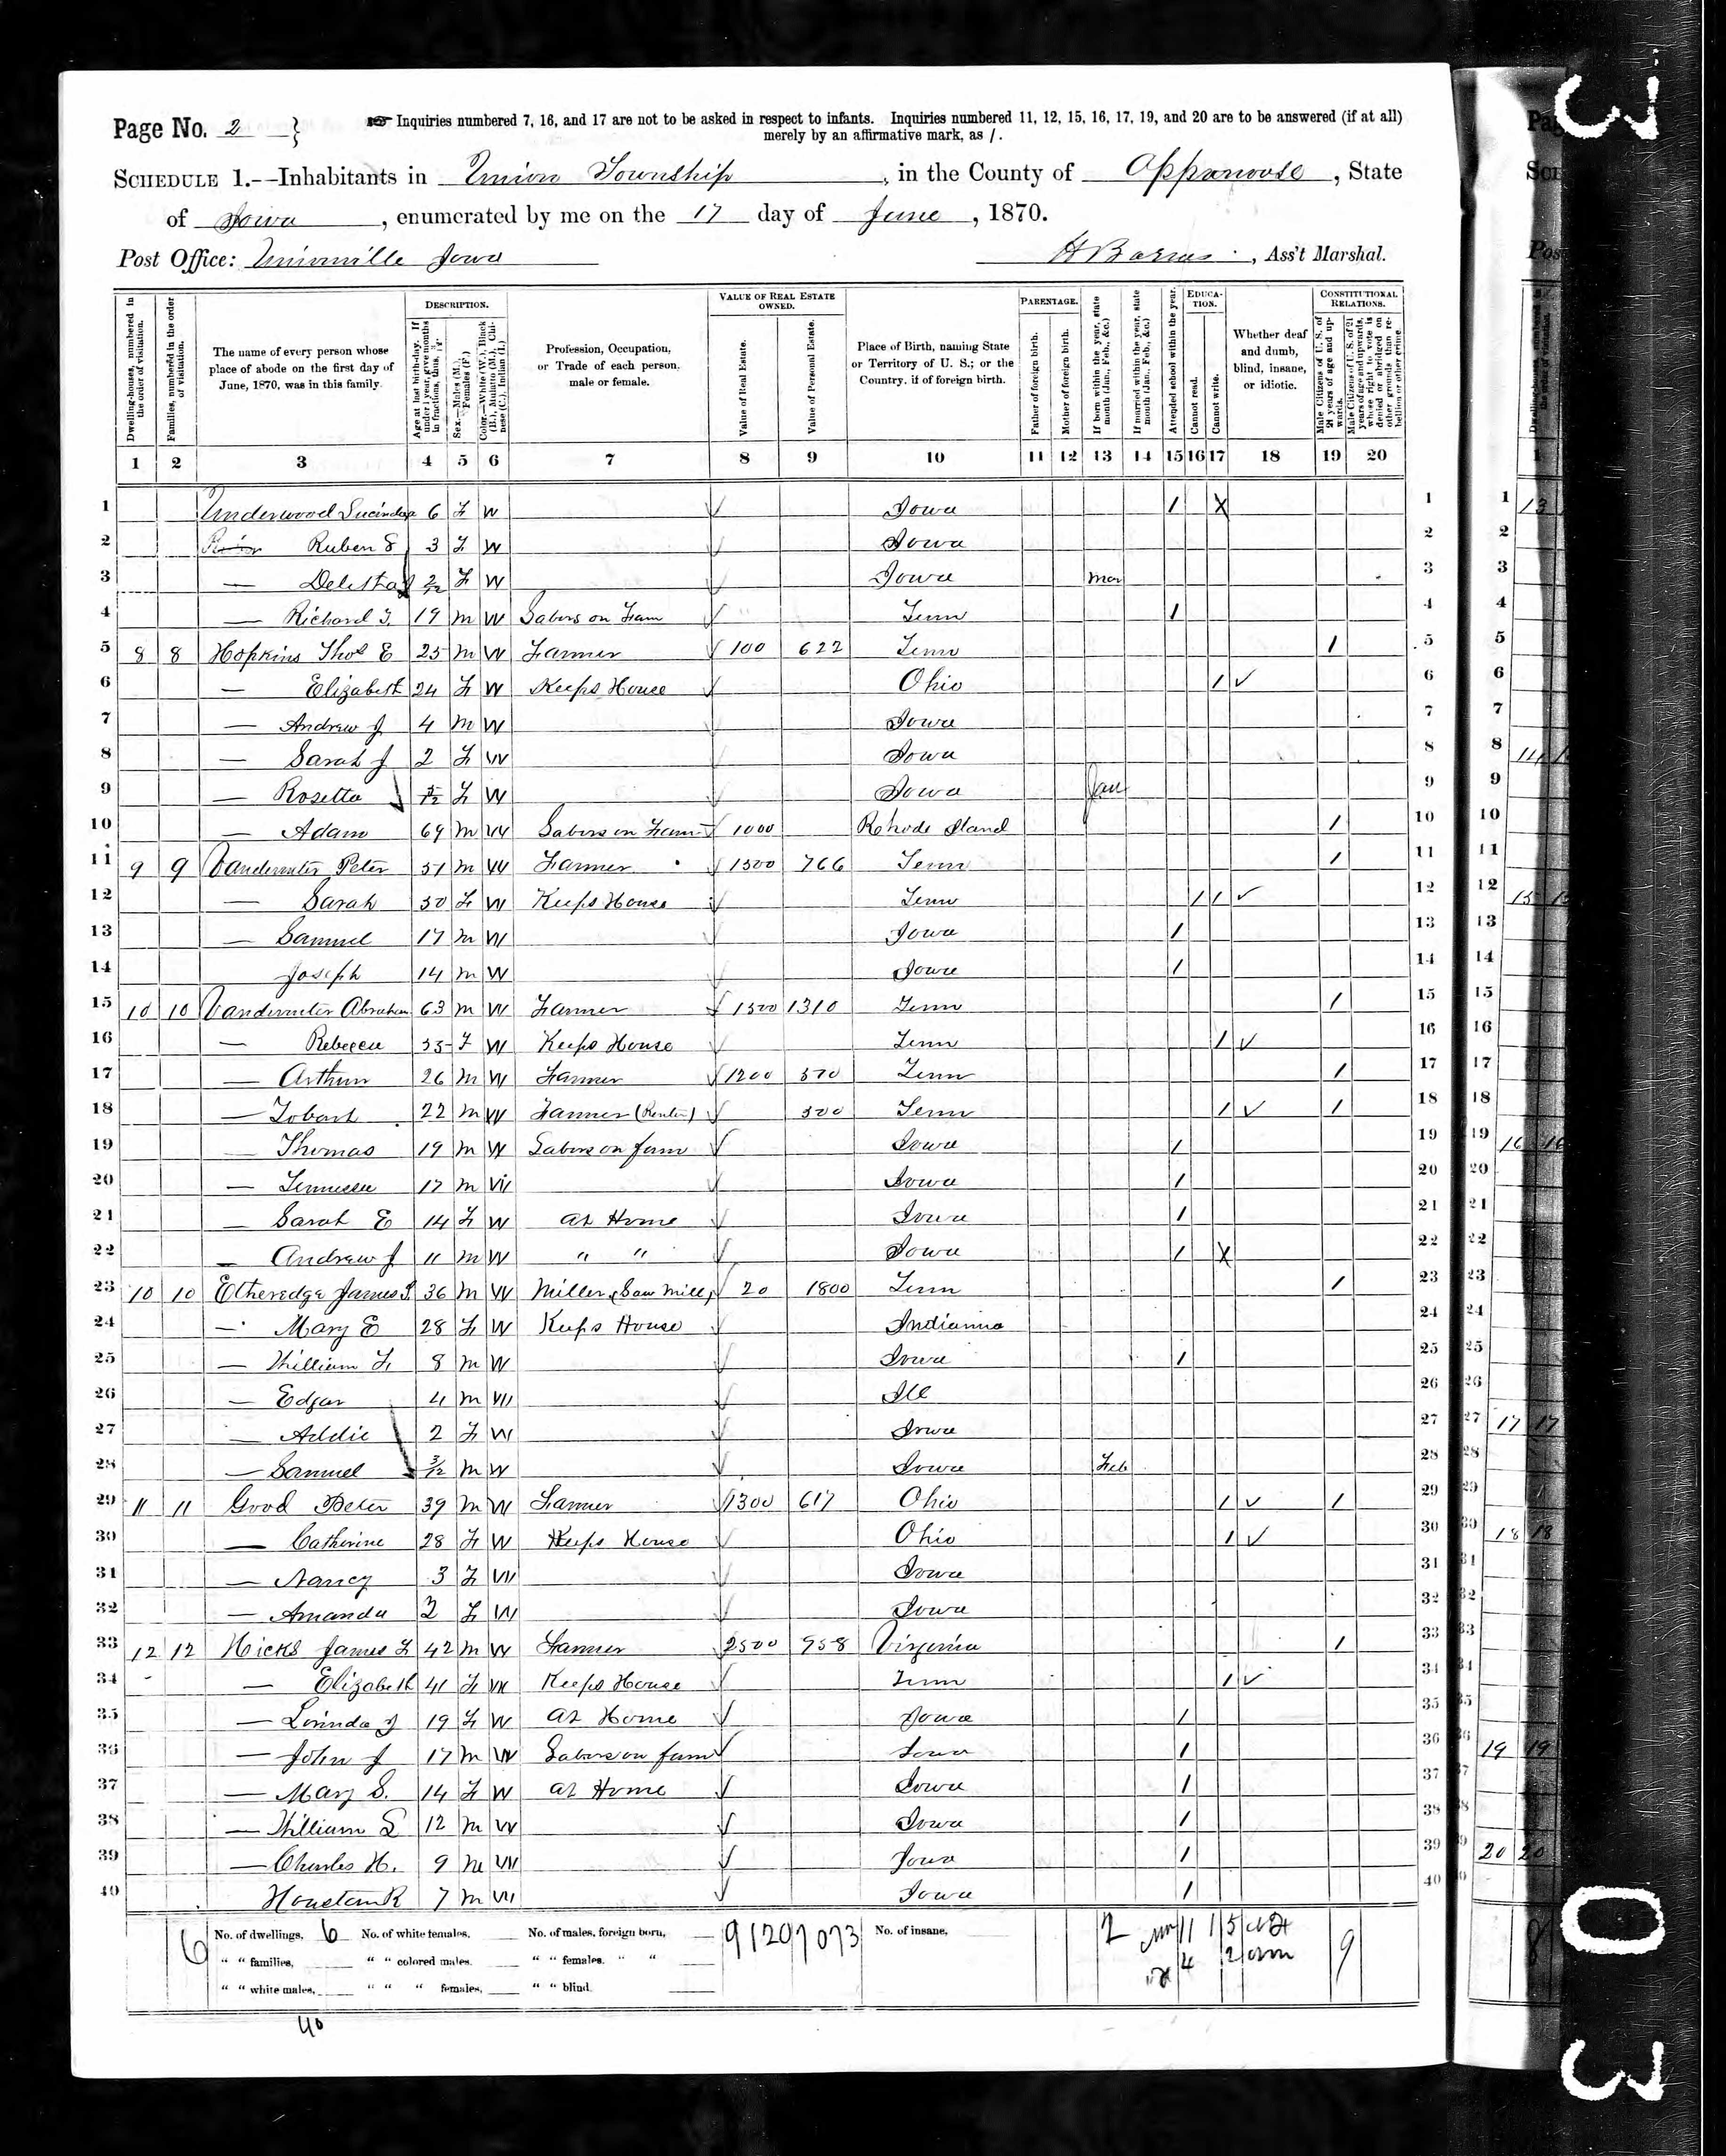 Page No. 2
☞ Inquiries numbered 7, 16, and 17 are not to be asked in respect to infants. Inquiries numbered 11, 12, 15, 16, 17, 19, and 20 are to be answered (if at all)
merely by an affirmative mark, as /.
SCHEDULE 1.—Inhabitants in Union Township, in the County of Appanoose, State
of Iowa, enumerated by me on the 17 day of June, 1870.
Post Office: Unionville Iowa
H Barnes, Ass't Marshal.
Dwelling-houses, numbered in the order of visitation.
Families, numbered in the order of visitation.
The name of every person whose place of abode on the first day of June, 1870, was in this family.
DESCRIPTION.
Age at last birth-day. If under 1 year, give months in fractions, thus, 3/12.
Sex.—Males (M.), Females (F.)
Color.—White (W.), Black (B.), Mulatto (M.), Chinese (C.), Indian (I.)
Profession, Occupation, or Trade of each person, male or female.
VALUE OF REAL ESTATE OWNED.
Value of Real Estate.
Value of Personal Estate.
Place of Birth, naming State or Territory of U. S.; or the Country, if of foreign birth.
PARENTAGE.
Father of foreign birth.
Mother of foreign birth.
If born within the year, state month (Jan., Feb., &c.)
If married within the year, state month (Jan., Feb., &c.)
Attended school within the year.
EDUCATION.
Cannot read.
Cannot write.
Whether deaf and dumb, blind, insane, or idiotic.
CONSTITUTIONAL RELATIONS.
Male Citizens of U. S. of 21 years of age and upwards.
Male Citizens of U. S. of 21 years of age and upwards, whose right to vote is denied or abridged on other grounds than rebellion or other crime.
1 2 3 4 5 6 7 8 9 10 11 12 13 14 15 16 17 18 19 20
1 Underwood Lucinda 6 F W Iowa / X 1
2 Ruben S 3 F W Iowa 2
3 — Delitha 2/12 F W Iowa Mar 3
4 — Richard T. 19 M W Labors on Farm Tenn / 4
5 8 8 Hopkins Thos E 25 M W Farmer 100 622 Tenn / 5
6 — Elizabeth 24 F W Keeps House Ohio / ✓ 6
7 — Andrew J 4 M W Iowa 7
8 — Sarah J 2 F W Iowa 8
9 — Rosetta 5/12 F W Iowa Jan 9
10 — Adam 69 M W Labors on Farm 1000 Rohode Iland / 10
11 9 9 Vanderveter Peter 51 M W Farmer 1500 766 Tenn / 11
12 — Sarah 50 F W Keeps House Tenn / / ✓ 12
13 — Samuel 17 M W Iowa / 13
14 Joseph 14 M W Iowa / 14
15 10 10 Vanderveter Abraham 63 M W Farmer 1500 1310 Tenn / 15
16 — Rebecca 55 F W Keeps House Tenn / ✓ 16
17 — Arthur 26 M W Farmer 1200 570 Tenn / 17
18 — 22 M W Farmer (Renter) 500 Tenn / ✓ / 18
19 — Thomas 19 M W Labors on farm Iowa / 19
20 — Tennessee 17 M W Iowa / 20
21 — Sarah E 14 F W At Home Iowa / 21
22 — Andrew J 11 M W " " Iowa / X 22
23 10 10 Etheredge James S. 36 M W Miller (Saw Mill) 20 1800 Tenn / 23
24 — Mary E 28 F W Keeps House Indianna 24
25 — William F. 8 M W Iowa / 25
26 — Edgar 4 M W Ill 26
27 — Addie 2 F W Iowa 27
28 — Samuel 3/12 M W Iowa Feb 28
29 11 11 Good Peter 39 M W Farmer 1300 617 Ohio / ✓ / 29
30 — Catherine 28 F W Keeps House Ohio / ✓ 30
31 — Nancy 3 F W Iowa 31
32 — Amanda 2 F W Iowa 32
33 12 12 Hicks James F 42 M W Farmer 2500 958 Virginia / 33
34 — Elizabeth 41 F W Keeps House Tenn / ✓ 34
35 — Lorinda J 19 F W At Home Iowa / 35
36 — John J 17 M W Labors on farm Iowa / 36
37 — Mary S. 14 F W At Home Iowa / 37
38 — William L 12 M W Iowa / 38
39 — Charles H. 9 M W Iowa / 39
40 Houston R 7 M W Iowa / 40
6 No. of dwellings, 6 No. of white females, No. of males, foreign born, 9120 7073 No. of insane, 2 9
" " families, " " colored males, " " females, " "
" " white males, " " " females, " " blind.
40
3
0
3